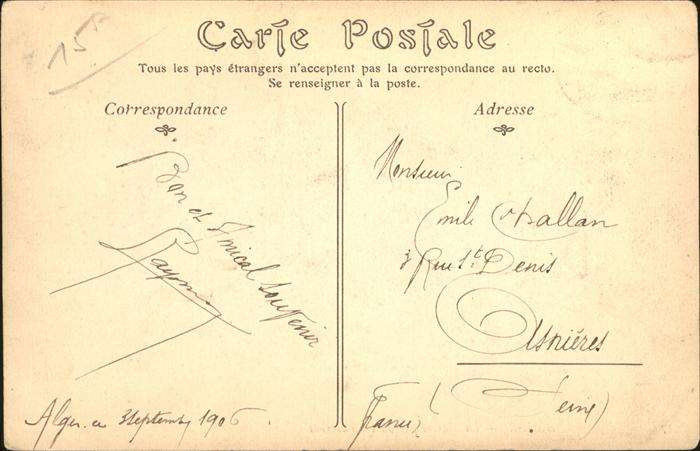 15 F
Carte Postale
Tous les pays étrangers n'acceptent pas la correspondance au recto.
Se renseigner à la poste.
Correspondance
Bon et Amical Souvenir
Alger, ce 3 Septemb 1906
Adresse
Monsieur
Emile Challan
3 Rue St Denis
Asnières
(Seine)
France